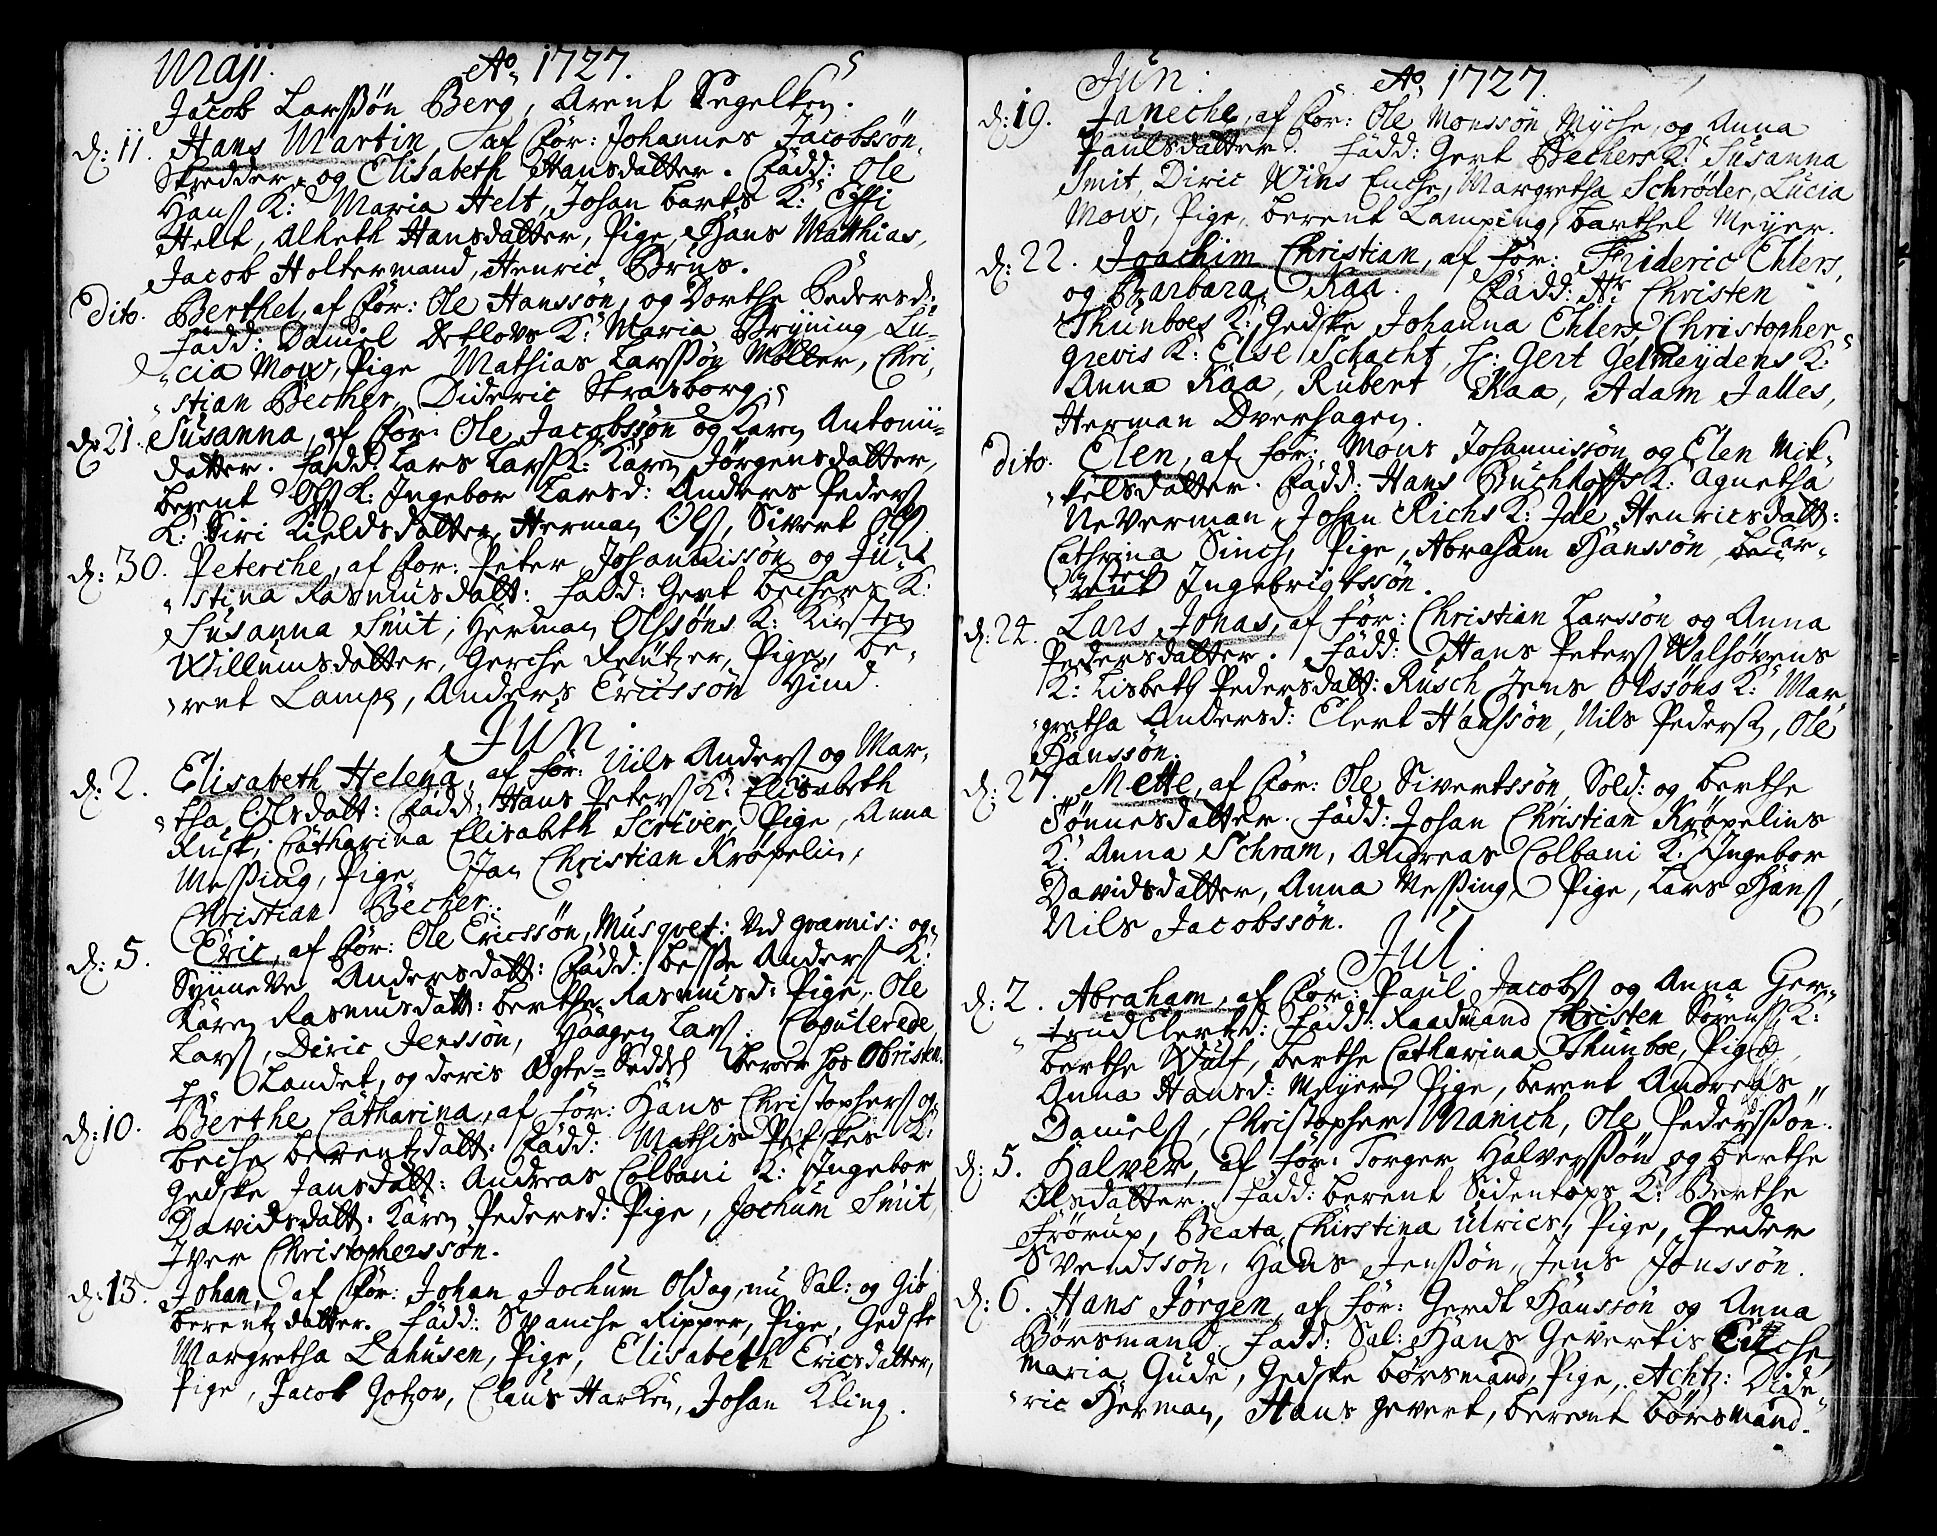 Maji. Ao 1727.
Jacob Larssøn Berg, Arent Segelken.
d: 11. Hans Martin, af For: Johannes Jacobssøn,
Skredder, og Elisabeth Hansdatter. Fadd: Ole
Hans K: Maria Helt, Johan barts K: Effi
Helt, Alheth Hansdatter, Pige, Hans Mathias,
Jacob Holtermand, Henric Brüs.
Dito. Berthel, af For: Ole Hanssøn, og Dorthe Pedersd:
Fadd: Daniel Detlovs K: Maria Bryning, Lu-
cia Mow, Pige Mathias Larssøn Møller, Chri-
stian Becher, Dideric Strasborg.
d: 21. Susanna, af For: Ole Jacobssøn og Karen Antonii-
datter. Fadd: Lars Larss K: Karen Jørgensdatter,
berent Olss K: Ingebor Larsd: Anders Pederss
K: Siri Kieldsdatter, Herman Olss, Sivert Olss.
d: 30. Peterche, af For: Peter Johannissøn og Ju-
stina Rasmusdatt: Fadd: Gert bechers K:
Susanna Smit, Herman Olssøns K: Kirsten
Willumsdatter, Gerche Reützer, Pige, be-
rent Lampe, Anders Ericssøn Hind.
Jun.
d: 2. Elisabeth Helena, af For: Nils Anderss og Mar-
tha Olsdatt: Fadd: Hans Peterss K: Elisabeth
Rusk, Catharina Elisabeth Scriver, Pige, Anna
Messing, Pige, Jan Christian Krøpelin,
Christian Becher.
d: 5. Eric, af For: Ole Ericssøn, Musqvet: ved gvarnis: og
Synneve Andersdatt: Fadd: besse Anderss K:
Karen Rasmusdatt: berthe Rasmusd: Pige, Ole
Larss, Diric Jenssøn, Haagen Larss. Copulerede
Landet, og deris Ægte-Seddel beroer hos Obristen.
d: 10. Berthe Catharina, af For: Hans Christopherss og
beche berentzdatt: Fadd: Mathis K:
Gedske Jansdatt: Andreas Colbani K: Ingebor
Davidsdatt: Karen Pedersd: Pige, Jochum Smit,
Iver Christopherssøn.
d: 13. Johan, af For: Johan Jochum Oldag, nu Sal: og Gis
berentzdatter. Fadd: Svanche Ripper, Pige, Gedske
Margretha Lahusen, Pige, Elisabeth Ericsdatter,
Pige, Jacob Jotzov, Claus Harken, Johan Kling.
Jun. Ao 1727.
d: 19. Janeche, af For: Ole Monssøn Myche, og Anna
Paulsdatter. Fadd: Gert Bechers K: Susanna
Smit, Diric Wins Enche, Margretha Schrøder, Lucia
Mow, Pige, berent Lamping, barthel Meyer.
d: 22. Joachim Christian, af For: Frideric Ehlers,
og Barbara Kaa. Fadd: Hr Christen
Thunboes K: Gedske Johanna Ehlers, Christopher
grevis K: Else Schacht, Gert Gelmeydens K:
Anna Kaa, Rubert Kaa, Adam Jalles,
Herman Dverhagen.
dito. Elen, af For: Mons Johannissøn og Elen Mik-
kelsdatter. Fadd: Hans Buchhoffs K: Agnetha
Neverman, Johan Richs K: Ide Henricsdatt:
Cathrina Sinch, Pige, Abraham Hanssøn,
Ingebrigtssøn.
d: 24. Lars Jonas, af For: Christian Larssøn og Anna
Pedersdatter. Fadd: Hans Peterss Walsørens
K: Lisbeth Pedersdatt: Rüsch, Jens Olssøns K: Mar-
gretha Andersd: Elert Hanssøn, Nils Pederss, Ole
Hanssøn.
d: 27. Mette, af For: Ole Sivertssøn, Sold: og berthe
Tønnesdatter. Fadd: Johan Christian Krøpelins
K: Anna Schram, Andreas Colbani K: Ingebor
Davidsdatter, Anna Messing, Pige, Lars Hanss,
Nils Jacobssøn.
Jul.
d: 2. Abraham, af For: Paul Jacobss og Anna Ger-
trud Elertsd: Fadd: Raadmand Christen Sørenss K:
berthe Wulf, berthe Catharina Thunboe, Pige,
Anna Hansd: Meyer, Pige, berent Andreas
Danielss, Christopher Manich, Ole Pederssøn.
d: 5. Halver, af For: Torger Halverssøn og berthe
Olsdatter. Fadd: berent Sidentops K: Berthe
Frørup, Beata Christina Ulrics, Pige, Peder
Svendssøn, Hans Jenssøn, Jens Jonssøn.
d: 6. Hans Jørgen, af For: Gerdt Hanssøn og Anna
Børsmand. Fadd: Sal: Hans Gevertis Enche,
Maria Gude, Gedske børsmand, Pige, Achtz: Dide-
ric Herman, Hans gevert, berent børsmand.